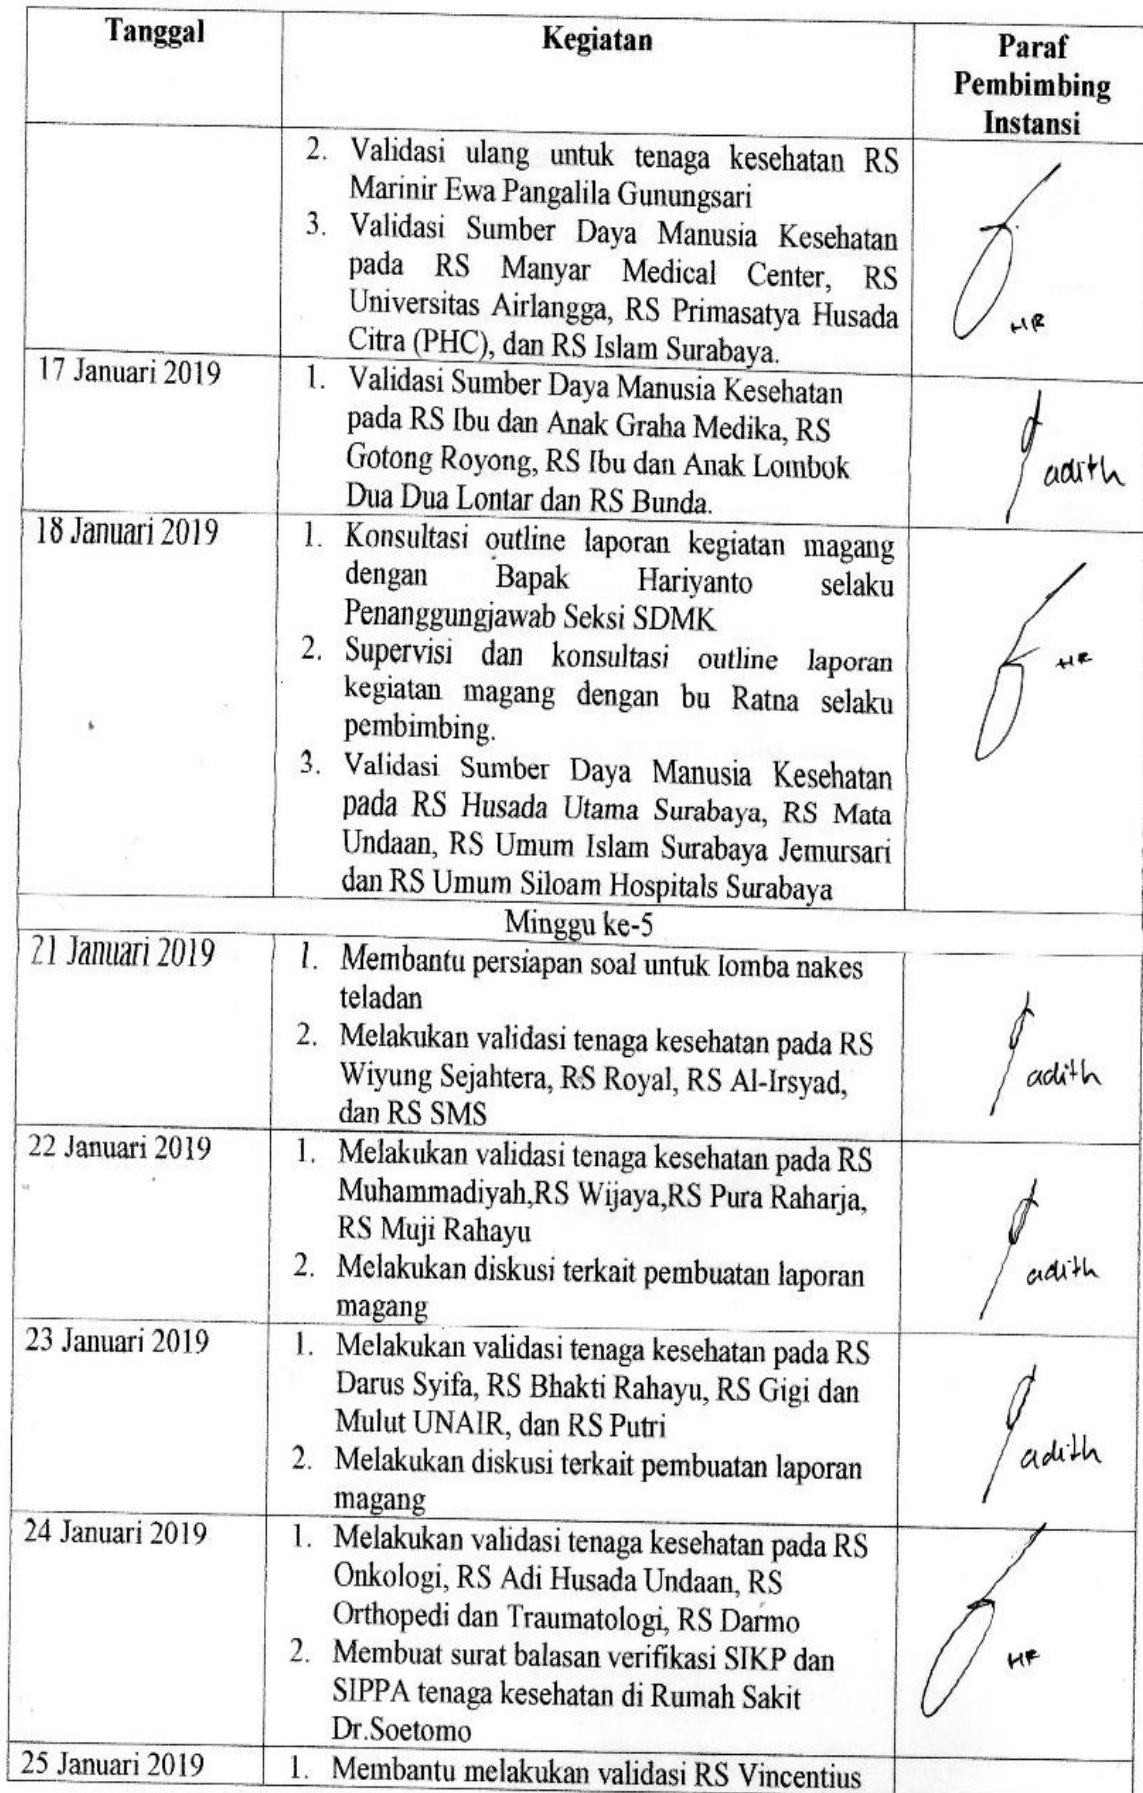 Tanggal
Kegiatan
Paraf
Pembimbing
Instansi
2. Validasi ulang untuk tenaga kesehatan RS
Marinir Ewa Pangalila Gunungsari
3. Validasi Sumber Daya Manusia Kesehatan
pada RS Manyar Medical Center, RS
Universitas Airlangga, RS Primasatya Husada
Citra (PHC), dan RS Islam Surabaya.
HR
17 Januari 2019
1. Validasi Sumber Daya Manusia Kesehatan
pada RS Ibu dan Anak Graha Medika, RS
Gotong Royong, RS Ibu dan Anak Lombok
Dua Dua Lontar dan RS Bunda.
adith
18 Januari 2019
1. Konsultasi outline laporan kegiatan magang
dengan Bapak Hariyanto selaku
Penanggungjawab Seksi SDMK
2. Supervisi dan konsultasi outline laporan
kegiatan magang dengan bu Ratna selaku
pembimbing.
3. Validasi Sumber Daya Manusia Kesehatan
pada RS Husada Utama Surabaya, RS Mata
Undaan, RS Umum Islam Surabaya Jemursari
dan RS Umum Siloam Hospitals Surabaya
HR
Minggu ke-5
21 Januari 2019
1. Membantu persiapan soal untuk lomba nakes
teladan
2. Melakukan validasi tenaga kesehatan pada RS
Wiyung Sejahtera, RS Royal, RS Al-Irsyad,
dan RS SMS
adith
22 Januari 2019
1. Melakukan validasi tenaga kesehatan pada RS
Muhammadiyah,RS Wijaya,RS Pura Raharja,
RS Muji Rahayu
2. Melakukan diskusi terkait pembuatan laporan
magang
adith
23 Januari 2019
1. Melakukan validasi tenaga kesehatan pada RS
Darus Syifa, RS Bhakti Rahayu, RS Gigi dan
Mulut UNAIR, dan RS Putri
2. Melakukan diskusi terkait pembuatan laporan
magang
adith
24 Januari 2019
1. Melakukan validasi tenaga kesehatan pada RS
Onkologi, RS Adi Husada Undaan, RS
Orthopedi dan Traumatologi, RS Darmo
2. Membuat surat balasan verifikasi SIKP dan
SIPPA tenaga kesehatan di Rumah Sakit
Dr.Soetomo
HR
25 Januari 2019
1. Membantu melakukan validasi RS Vincentius